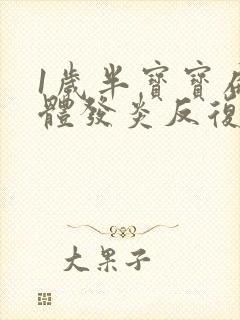 1歲半寶寶
體發炎反復
大果子